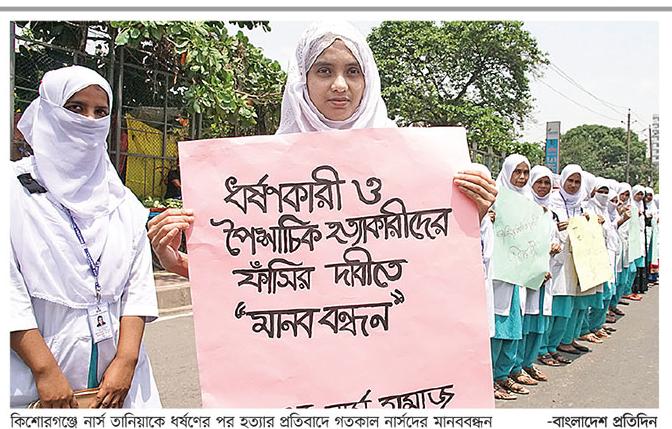 ধর্ষণকারী ও
পৈশাচিক হত্যাকারীদের
ফাঁসির দাবীতে
“মানব বন্ধন”
নার্স সমাজ
কিশোরগঞ্জে নার্স তানিয়াকে ধর্ষণের পর হত্যার প্রতিবাদে গতকাল নার্সদের মানববন্ধন -বাংলাদেশ প্রতিদিন